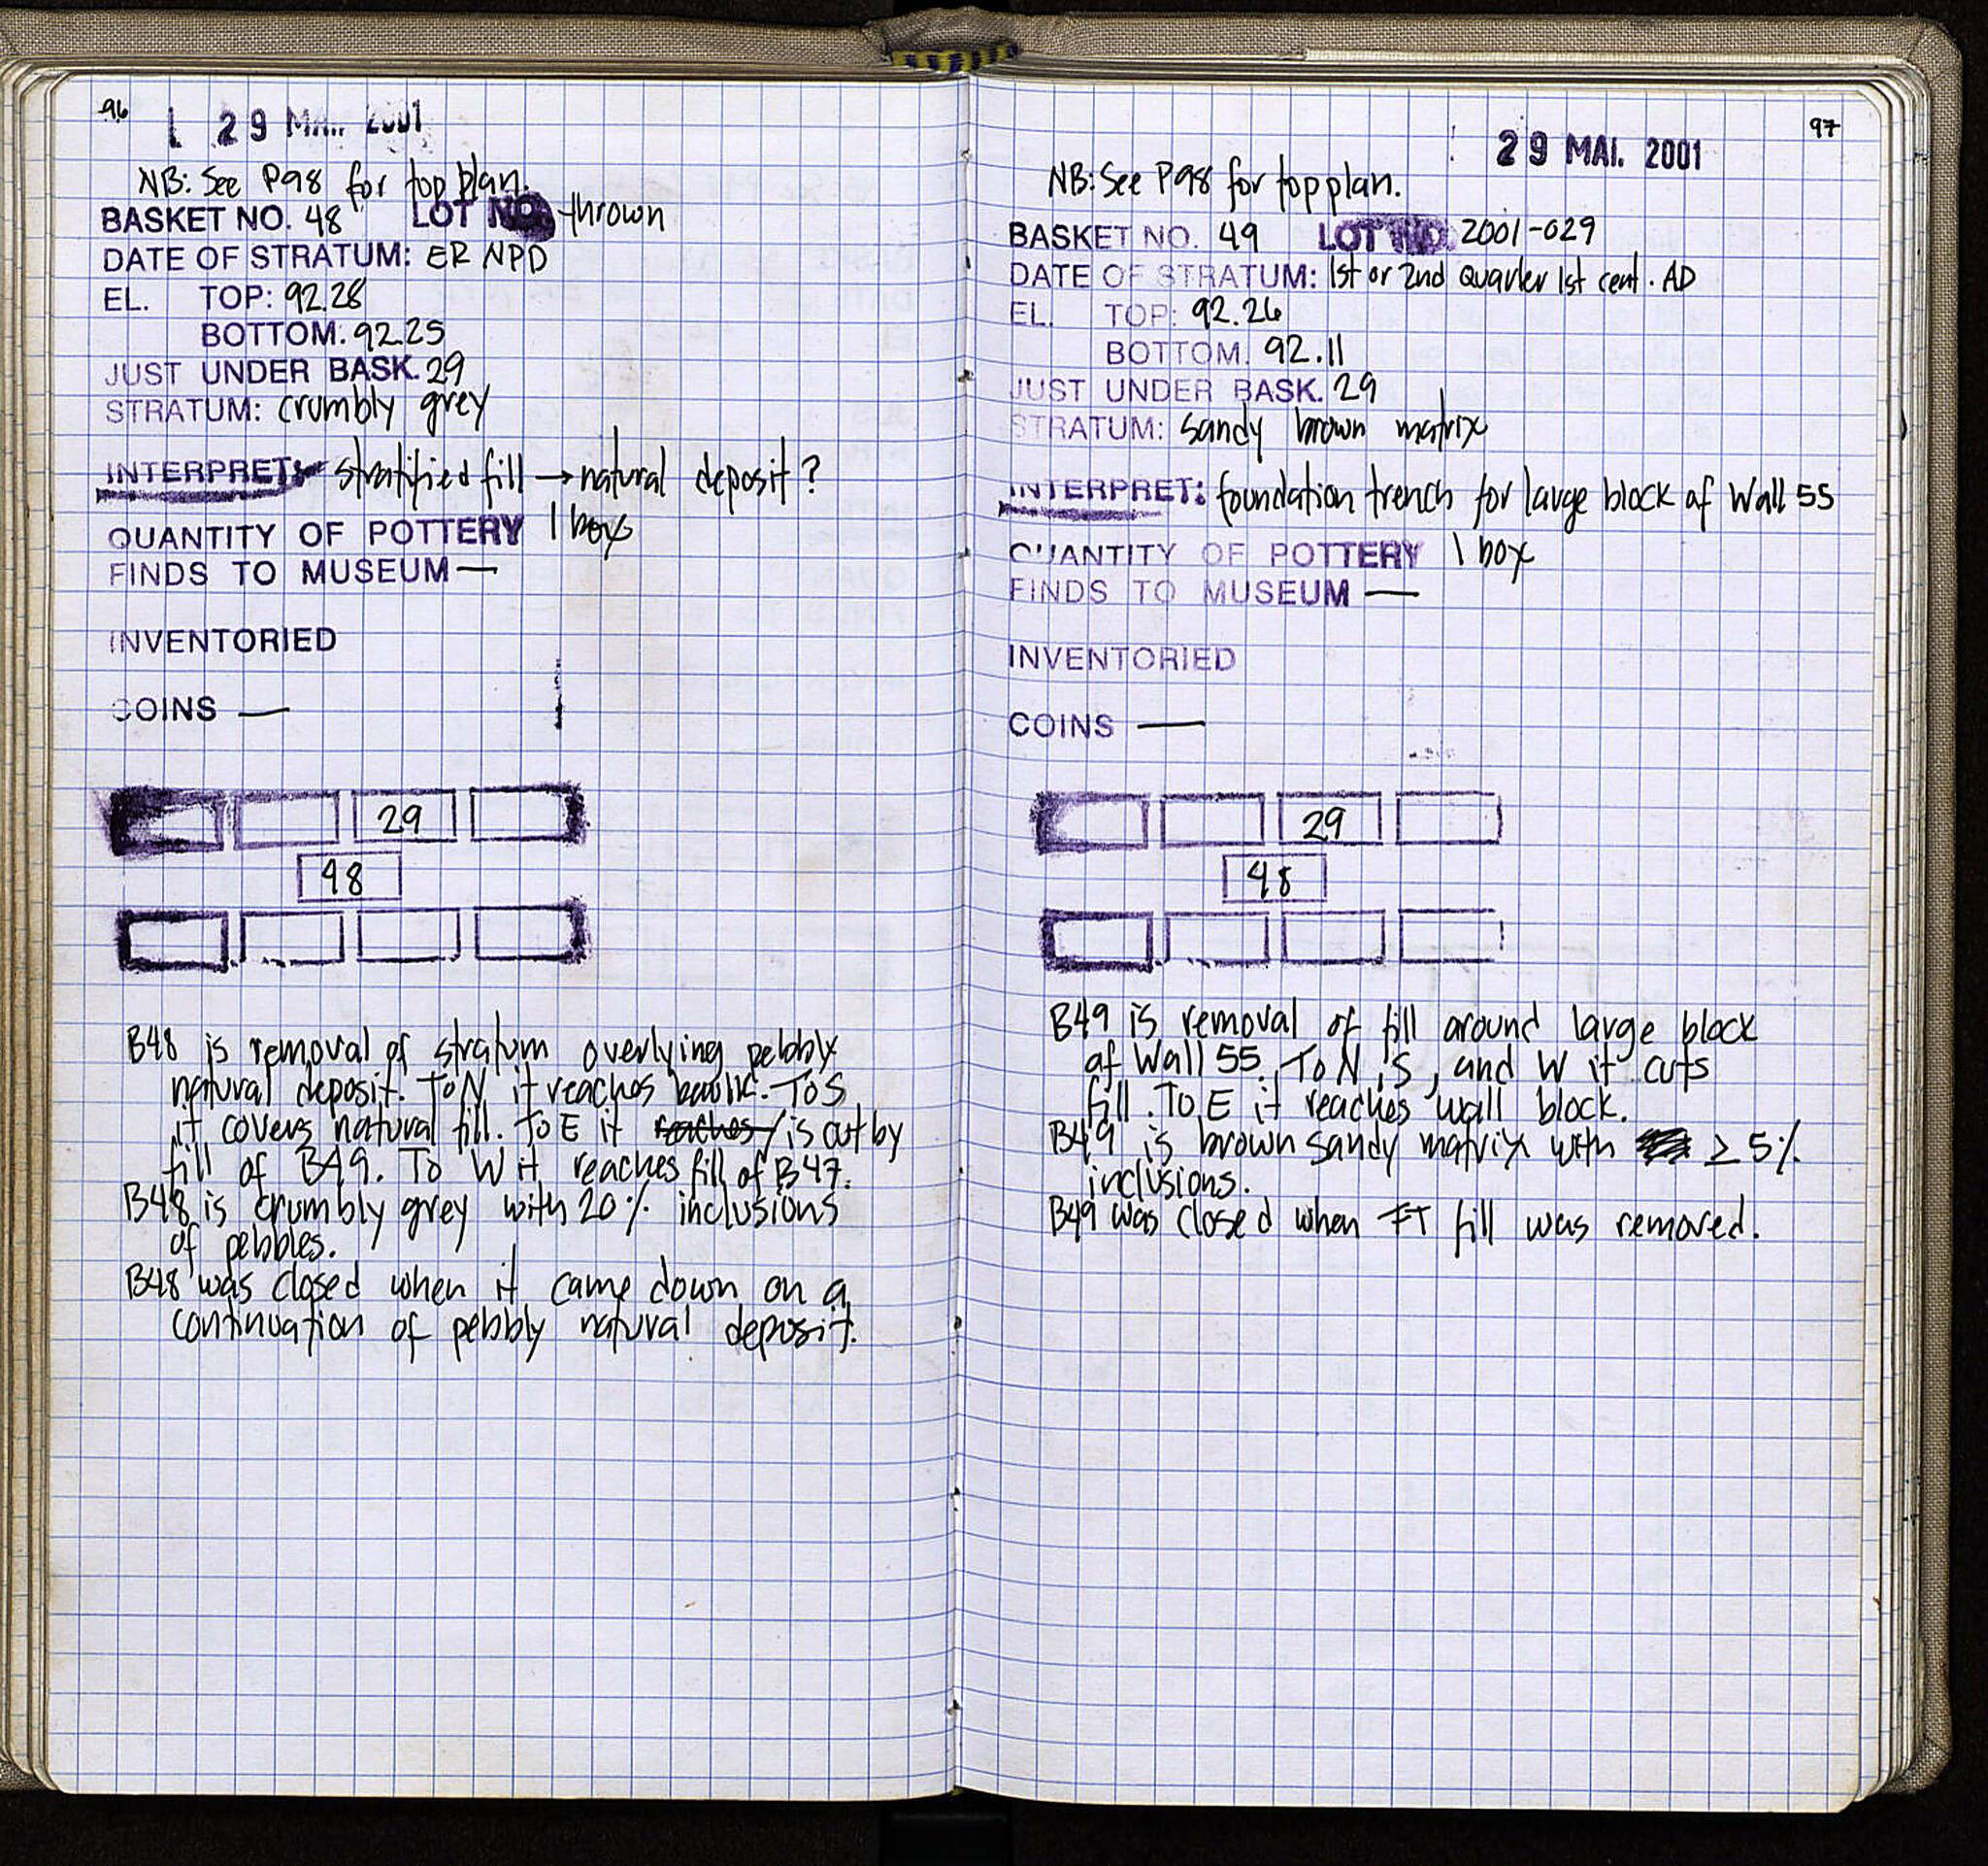 96
29 MAI. 2001
NB: See P98 for top plan.
BASKET NO. 48 LOT NO. thrown
DATE OF STRATUM: ER NPD
EL. TOP: 92.28
BOTTOM. 92.25
JUST UNDER BASK. 29
STRATUM: crumbly grey
INTERPRET: stratified fill → natural deposit?
QUANTITY OF POTTERY 1 box
FINDS TO MUSEUM —
INVENTORIED
COINS —
29
48
B48 is removal of stratum overlying pebbly
natural deposit. To N it reaches baulk. To S
it covers natural fill. To E it reaches / is cut by
fill of B49. To W it reaches fill of B47.
B48 is crumbly grey with 20% inclusions
of pebbles.
B48 was closed when it came down on a
continuation of pebbly natural deposit.
97
29 MAI. 2001
NB: See P98 for top plan.
BASKET NO. 49 LOT NO. 2001-029
DATE OF STRATUM: 1st or 2nd quarter 1st cent. AD
EL. TOP: 92.26
BOTTOM. 92.11
JUST UNDER BASK. 29
STRATUM: sandy brown matrix
INTERPRET: foundation trench for large block of Wall 55
QUANTITY OF POTTERY 1 box
FINDS TO MUSEUM —
INVENTORIED
COINS —
29
48
B49 is removal of fill around large block
of Wall 55. To N, S, and W it cuts
fill. To E it reaches wall block.
B49 is brown sandy matrix with ≥ 5%
inclusions.
B49 was closed when FT fill was removed.